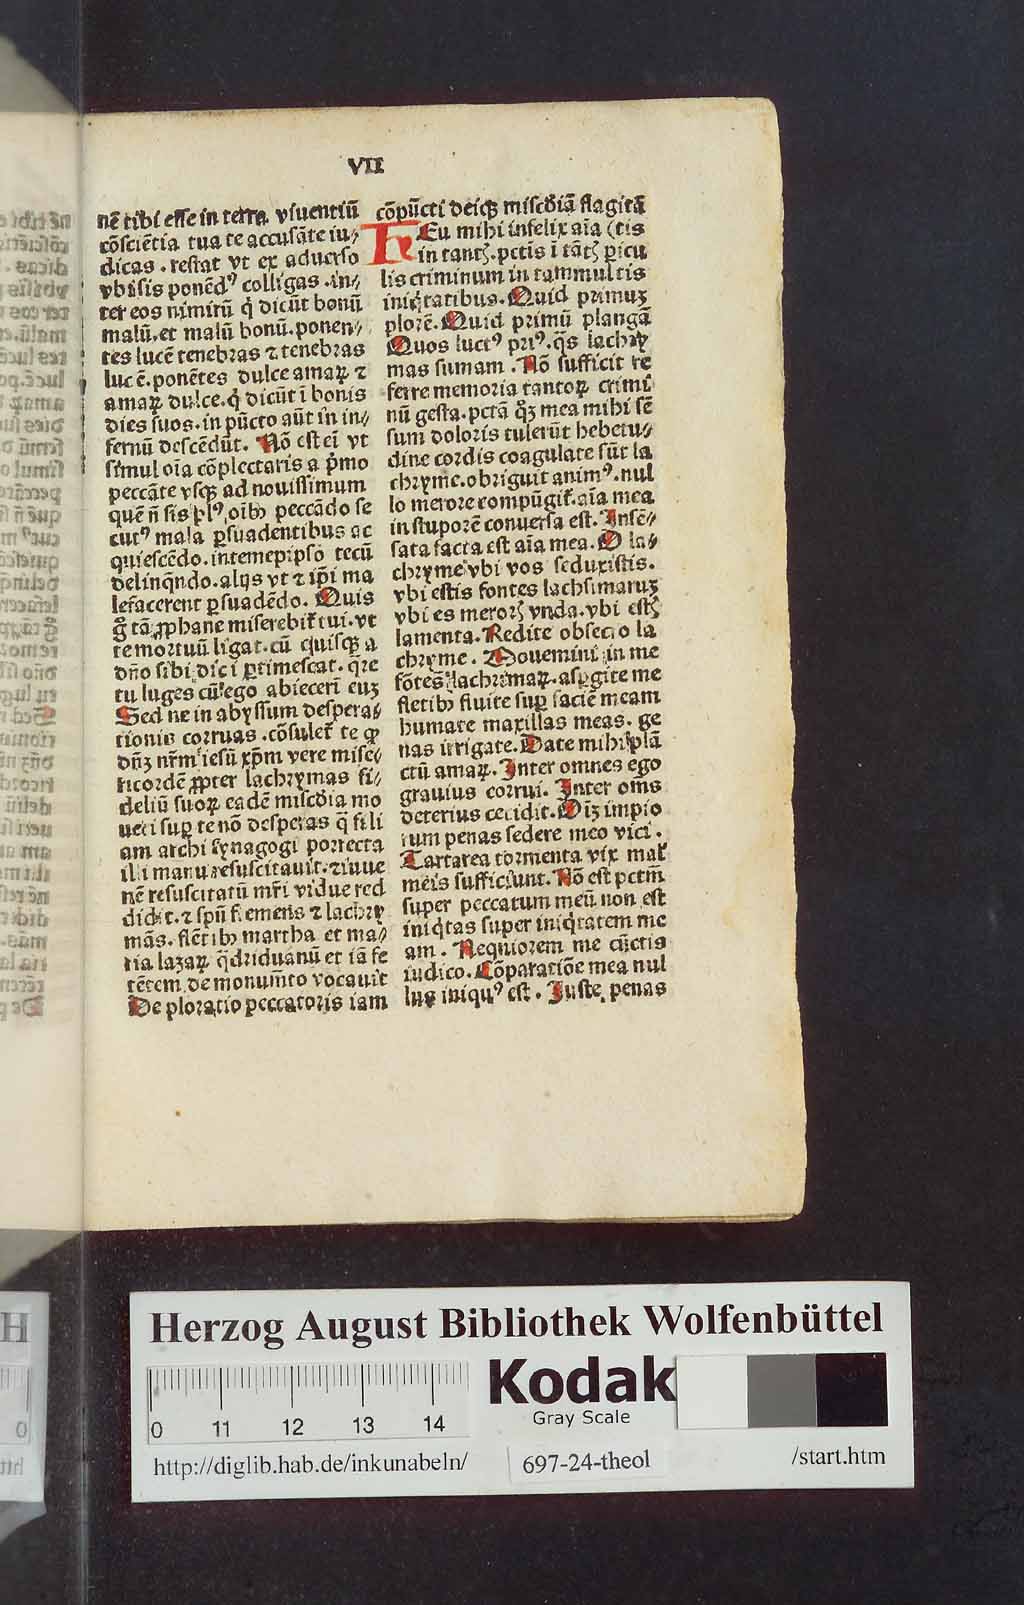 VII
nē tibi esse in terra viuentiū
cōsciētia tua te accusāte iu⸗
dicas . restat vt ex aduerso
vbi sis ponēdꝰ colligas .in⸗
ter eos nimirū q̇ dicūt bonū
malū.et malū bonū.ponen⸗
tes lucē tenebras ⁊ tenebras
lucē.ponētes dulce amaꝝ ⁊
amaꝝ dulce.q̇ dicūt ī bonis
dies suos.in pūcto aūt in in⸗
fernū descēdūt. Nō est eī vt
simul oīa cōplectaris a pͥmo
peccāte vsqꝫ ad nouissimum
quē n̄ sis plꝰ,oīb᷒ peccādo se
cutꝰ mala ꝑsuadentibus ac
quiescēdo.intemepipsō tecū
delinqͥndo.alijs vt ⁊ ip̄i ma
lefacerent ꝑsuadēdo. Quis
gͦ tā ꝓphane miserebit᷒ tui.vt
te mortuū ligat.cū quisqꝫ a
dn̄o sibi dici ꝑtimescat.q̄re
tu luges cū ego abiecerī euꝫ
Sed ne in abyssum despera⸗
tionis corruas.cōsulet᷒ te ꝙ
dn̄ꝫ nr̄m iesū xp̄m vere mise⸗
ricordē ꝓpter lachrymas fi⸗
deliū suoꝝ eadē miscd̄ia mo
ueri suꝑ te nō desperas q̄ fili
am archisynagogi porrecta
illi manu resuscitauit.⁊ iuue
nē resuscitatū mr̄i vidue red
didit.⁊ sp̄u fremens ⁊ lachry
mās.flētib᷒ martha et ma⸗
ria lazaꝝ q̄driduanū et iā fe
tētem de monumēto vocauit
De ploratio peccatoris iam
cōpūcti deiqꝫ miscd̄iā flagitā
HEu mihi infelix aīa (tis
in tantꝭ.pctīs ī tātꝭ ꝑicu
lis criminum in tam multis
iniqͥtatibus. Quid primuꝫ
plorē. Quid primū plangā
Quos luctꝰ priꝰ.q̄s lachry
mas sumam . Nō sufficit re
ferre memoria tantoꝝ crimi
nū gesta.pctā qͦꝫ mea mihi sē
sum doloris tulerūt hebetu⸗
dine cordis coagulate sūt la
chryme.obriguit animꝰ.nul
lo merore compūgit᷒.aīa mea
in stuporē conuersa est. Insē⸗
sata facta est aīa mea. O la⸗
chryme vbi vos seduxistis.
vbi estis fontes lachrimaruꝫ
vbi es merorꝭ vnda.vbi estꝭ
lamenta. Redite obsecro la
chryme . Mouemini in me
fōtes lachrimaꝝ.aspgite me
fletib᷒ fluite suꝑ faciē meam
humate maxillas meas. ge
nas irrigate. Date mihi plā
ctū amaꝝ. Inter omnes ego
grauius corrui. Inter om̄s
deterius cecidi. Oīꝫ impio
rum penas scelere meo vici .
Tartarea tormenta vix mal᷒
meis sufficiunt. Nō est pctm̄
super peccatum meū non est
iniqͥtas super iniqͥtatem me
am . Nequiorem me cūctis
iudico. Cōparatiōe mea nul
lus iniquꝰ est . Iuste penas
Herzog August Bibliothek Wolfenbüttel
Kodak
Gray Scale
0 11 12 13 14
http://diglib.hab.de/inkunabeln/ 697-24-theol /start.htm